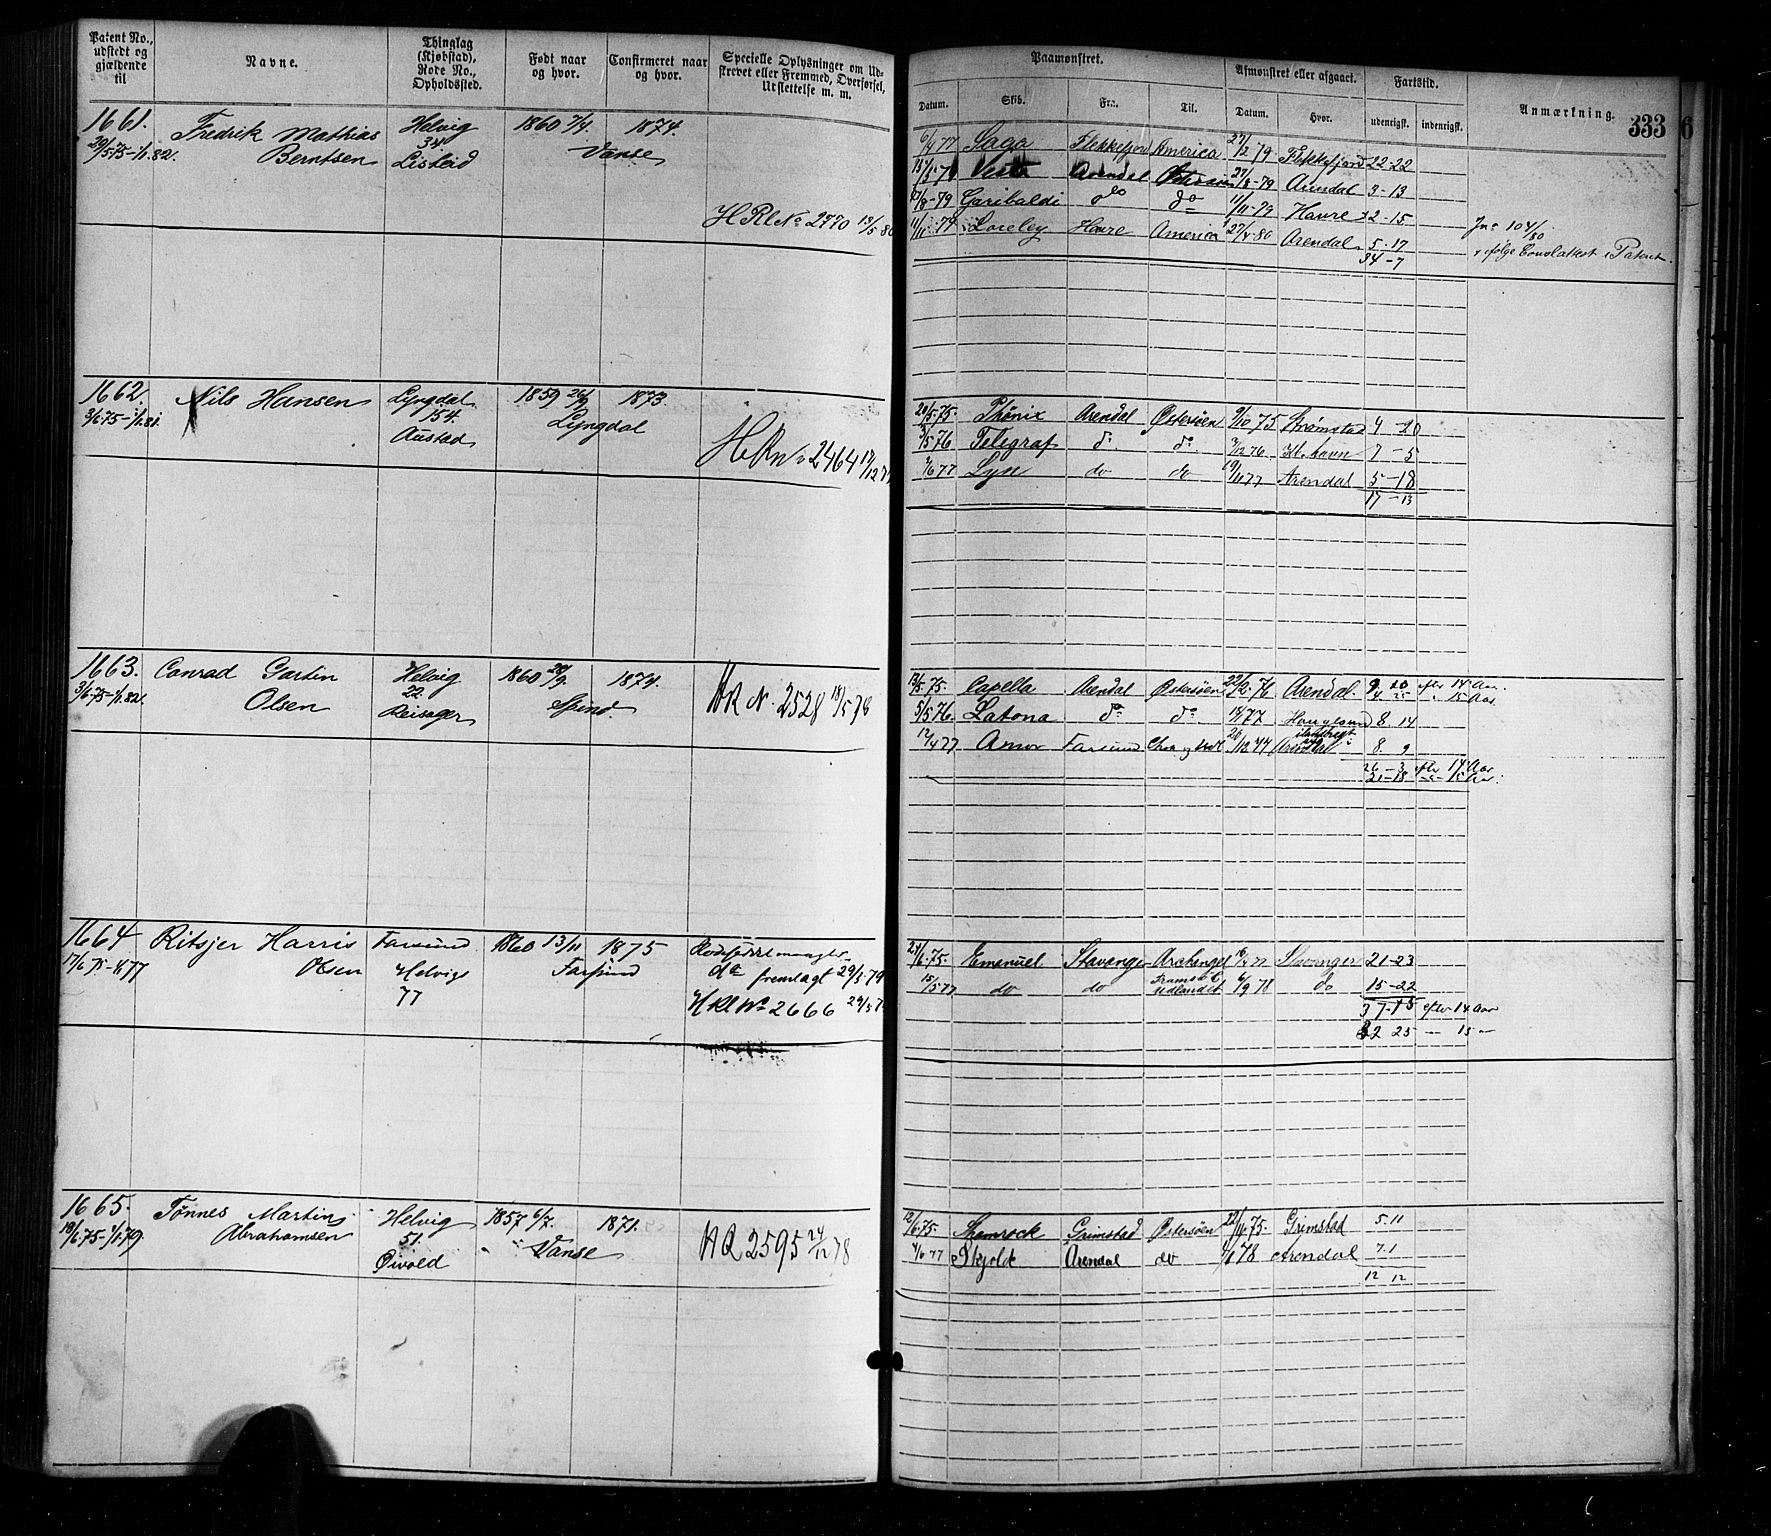 Patent No., udstedt og gjældende til
Navne.
Thinglag (Kjøbstad), Rode No., Opholdssted.
Født naar og hvor.
Confirmeret naar og hvor.
Specielle Oplysninger om Udskrevet eller Fremmed, Overførsel, Udslettelse m. m.
Paamønstret.
Afmønstret eller afgaaet.
Fartstid.
Anmærkning.
333
Datum. Skib. Fra. Til. Datum. Hvor. udenrigsk. indenrigsk.
1661. Fredrik Mathias Helvig 1860 7/4 1874.
29/5.75-1/1.82. Berntsen 34 Vanse
Listeid
H Rl No 2770 13/5 80
6/4 77 Saga Flekkefjord America 27/12 79 Flekkefjord 22-22
Vesta Arendal Østersøen 27/8-79 Arendal 3-13
Garibaldi do do 11/11-79 Havre 2-15
11/11-79 Loreley Havre America 27/4 80 Arendal 5-17
34-7
Jn: 104/80
ifølge Consulattest i Patent.
1662. Nils Hansen Lyngdal 1859 1873.
3/6.75-1/1.81. 154. Lyngdal
Austad
H R No 2464 17/12
20/5.75. Phønix Arendal Østersøen 9/10 75 Strømstad 4-20
3/5 76 Telegraf do do 7/12 76 Kbhavn 7-5
7/6 77 Lyn do do 19/11 77 Arendal 5-18
17-13
1663. Conrad Gartin Helvig 1860 20/9 1874.
3/6.75-1/1.82. Olsen 22. Spind.
Reisager
H R N. 2528 18/5 78
Capella Arendal Østersøen 22/12.76 Arendal. efter 14 Aar
" 15 Aar
5/5 76. Latona do do Haugesund 8. 14
12/4 77 Amor Farsund Arendal 8. 9
26-3 efter 14 Aar
21-18 " 15 Aar.
1664 Ritsjer Harris Farsund 1860 13/11 1875
17/6 75-1/1 77 Olsen Helvig Farsund
77
do fremlagt 29/3.79
H Rl No 2666 29/3 7
21/6.75. Emanuel Stavanger Archangel Stavanger 21-23
15/5 77 do do Udlandet 6/9 78 do 15-22
37-15 efter 14 Aar
32 25 — 15 —
1665. Tønnes Martin Helvig 1857 6/7. 1871.
18/6.75-1/1.79. Abrahamsen 51. Vanse
Øivold
H R 2595 24/12 78
12/6.75. Shamrock Grimstad Østersøen 22/11 75. Grimstad 5.11
4/6 77 Skjold Arendal do 78 Arendal 7.1
12 12